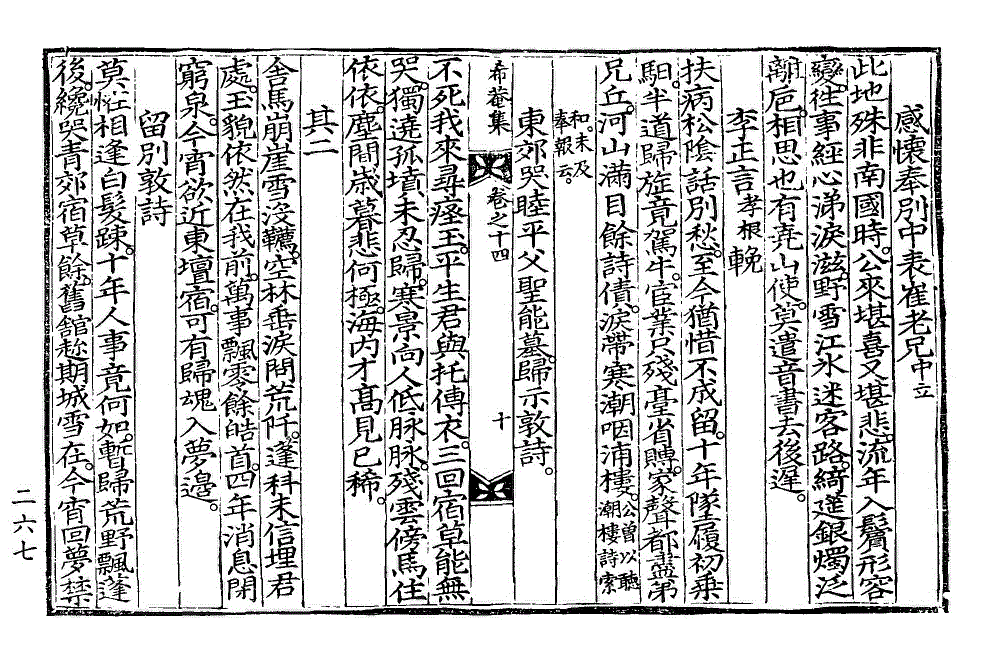 感懷奉別中表崔老兄中立
此地殊非南國時。公來堪喜又堪悲。流年入鬢形容
變。徃事經心涕淚滋。野雪江水迷客路。綺筵銀燭泛
離巵。相思也有堯山使。莫遣音書去後遲。
李正言孝根輓
扶病松陰話別愁。至今猶惜不成留。十年墜履初乗
馹。半道歸旋竟駕牛。宦業只殘臺省賻。家聲都盡弟
兄丘。河山滿目餘詩債。淚帶寒潮咽浦樓。公曾以聽潮樓詩索
和。未及奉報云。
東郊哭睦平父聖能墓。歸示敦詩。
希菴集 卷之十四 十
不死我來尋瘞玉。平生君與托傳衣。三回宿草能無
哭。獨遶孤墳未忍歸。寒景向人低脉脉。殘雲傍馬住
依依。塵間歲暮悲何極。海內才高見已稀。
其二
舍馬崩崖雪沒韉。空林垂淚問荒阡。蓬科未信埋君
處。玉貌依然在我前。萬事飄零餘皓首。四年消息閉
窮泉。今宵欲近東壇宿。可有歸魂入夢邊。
留別敦詩
莫恠相逢白髮踈。十年人事竟何如。暫歸荒野飄蓬
後。纔哭青郊宿草餘。舊舘趂期城雪在。今宵回夢禁
二六七